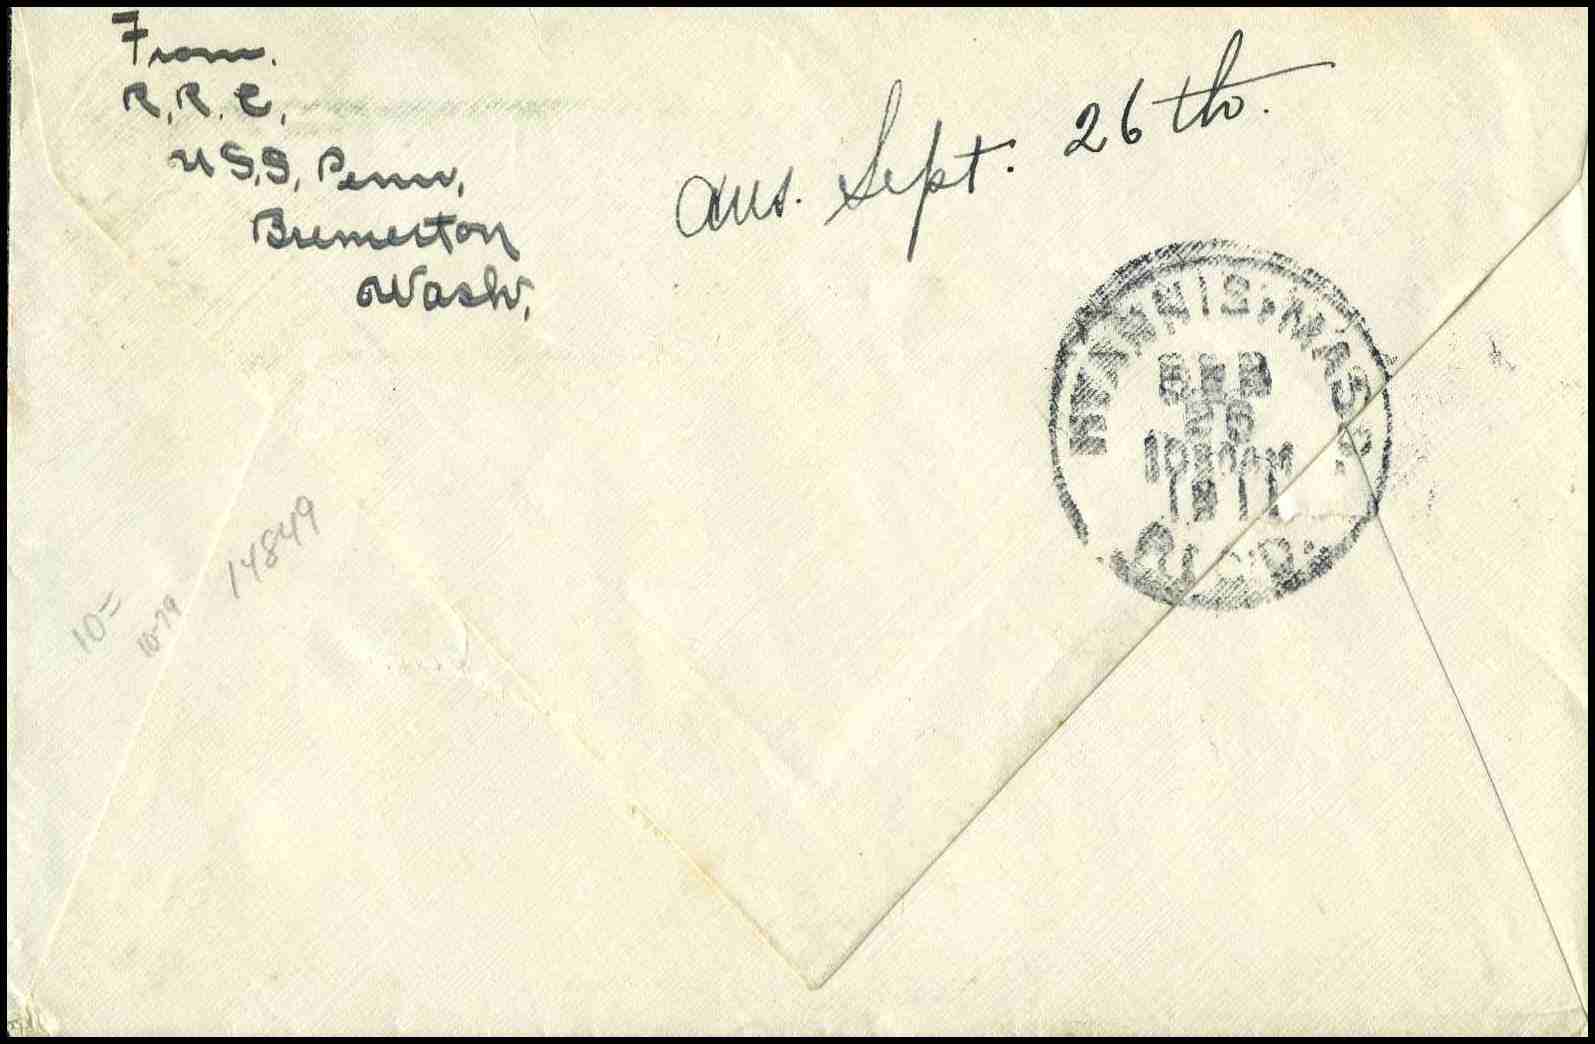 From.
R.R.C.
U.S.S. Penn,
Bremerton
Wash,
ans. Sept. 26th.
HYANNIS, MASS.
SEP
26
10 30 AM
1911
REC'D.
14849
10=
10-79